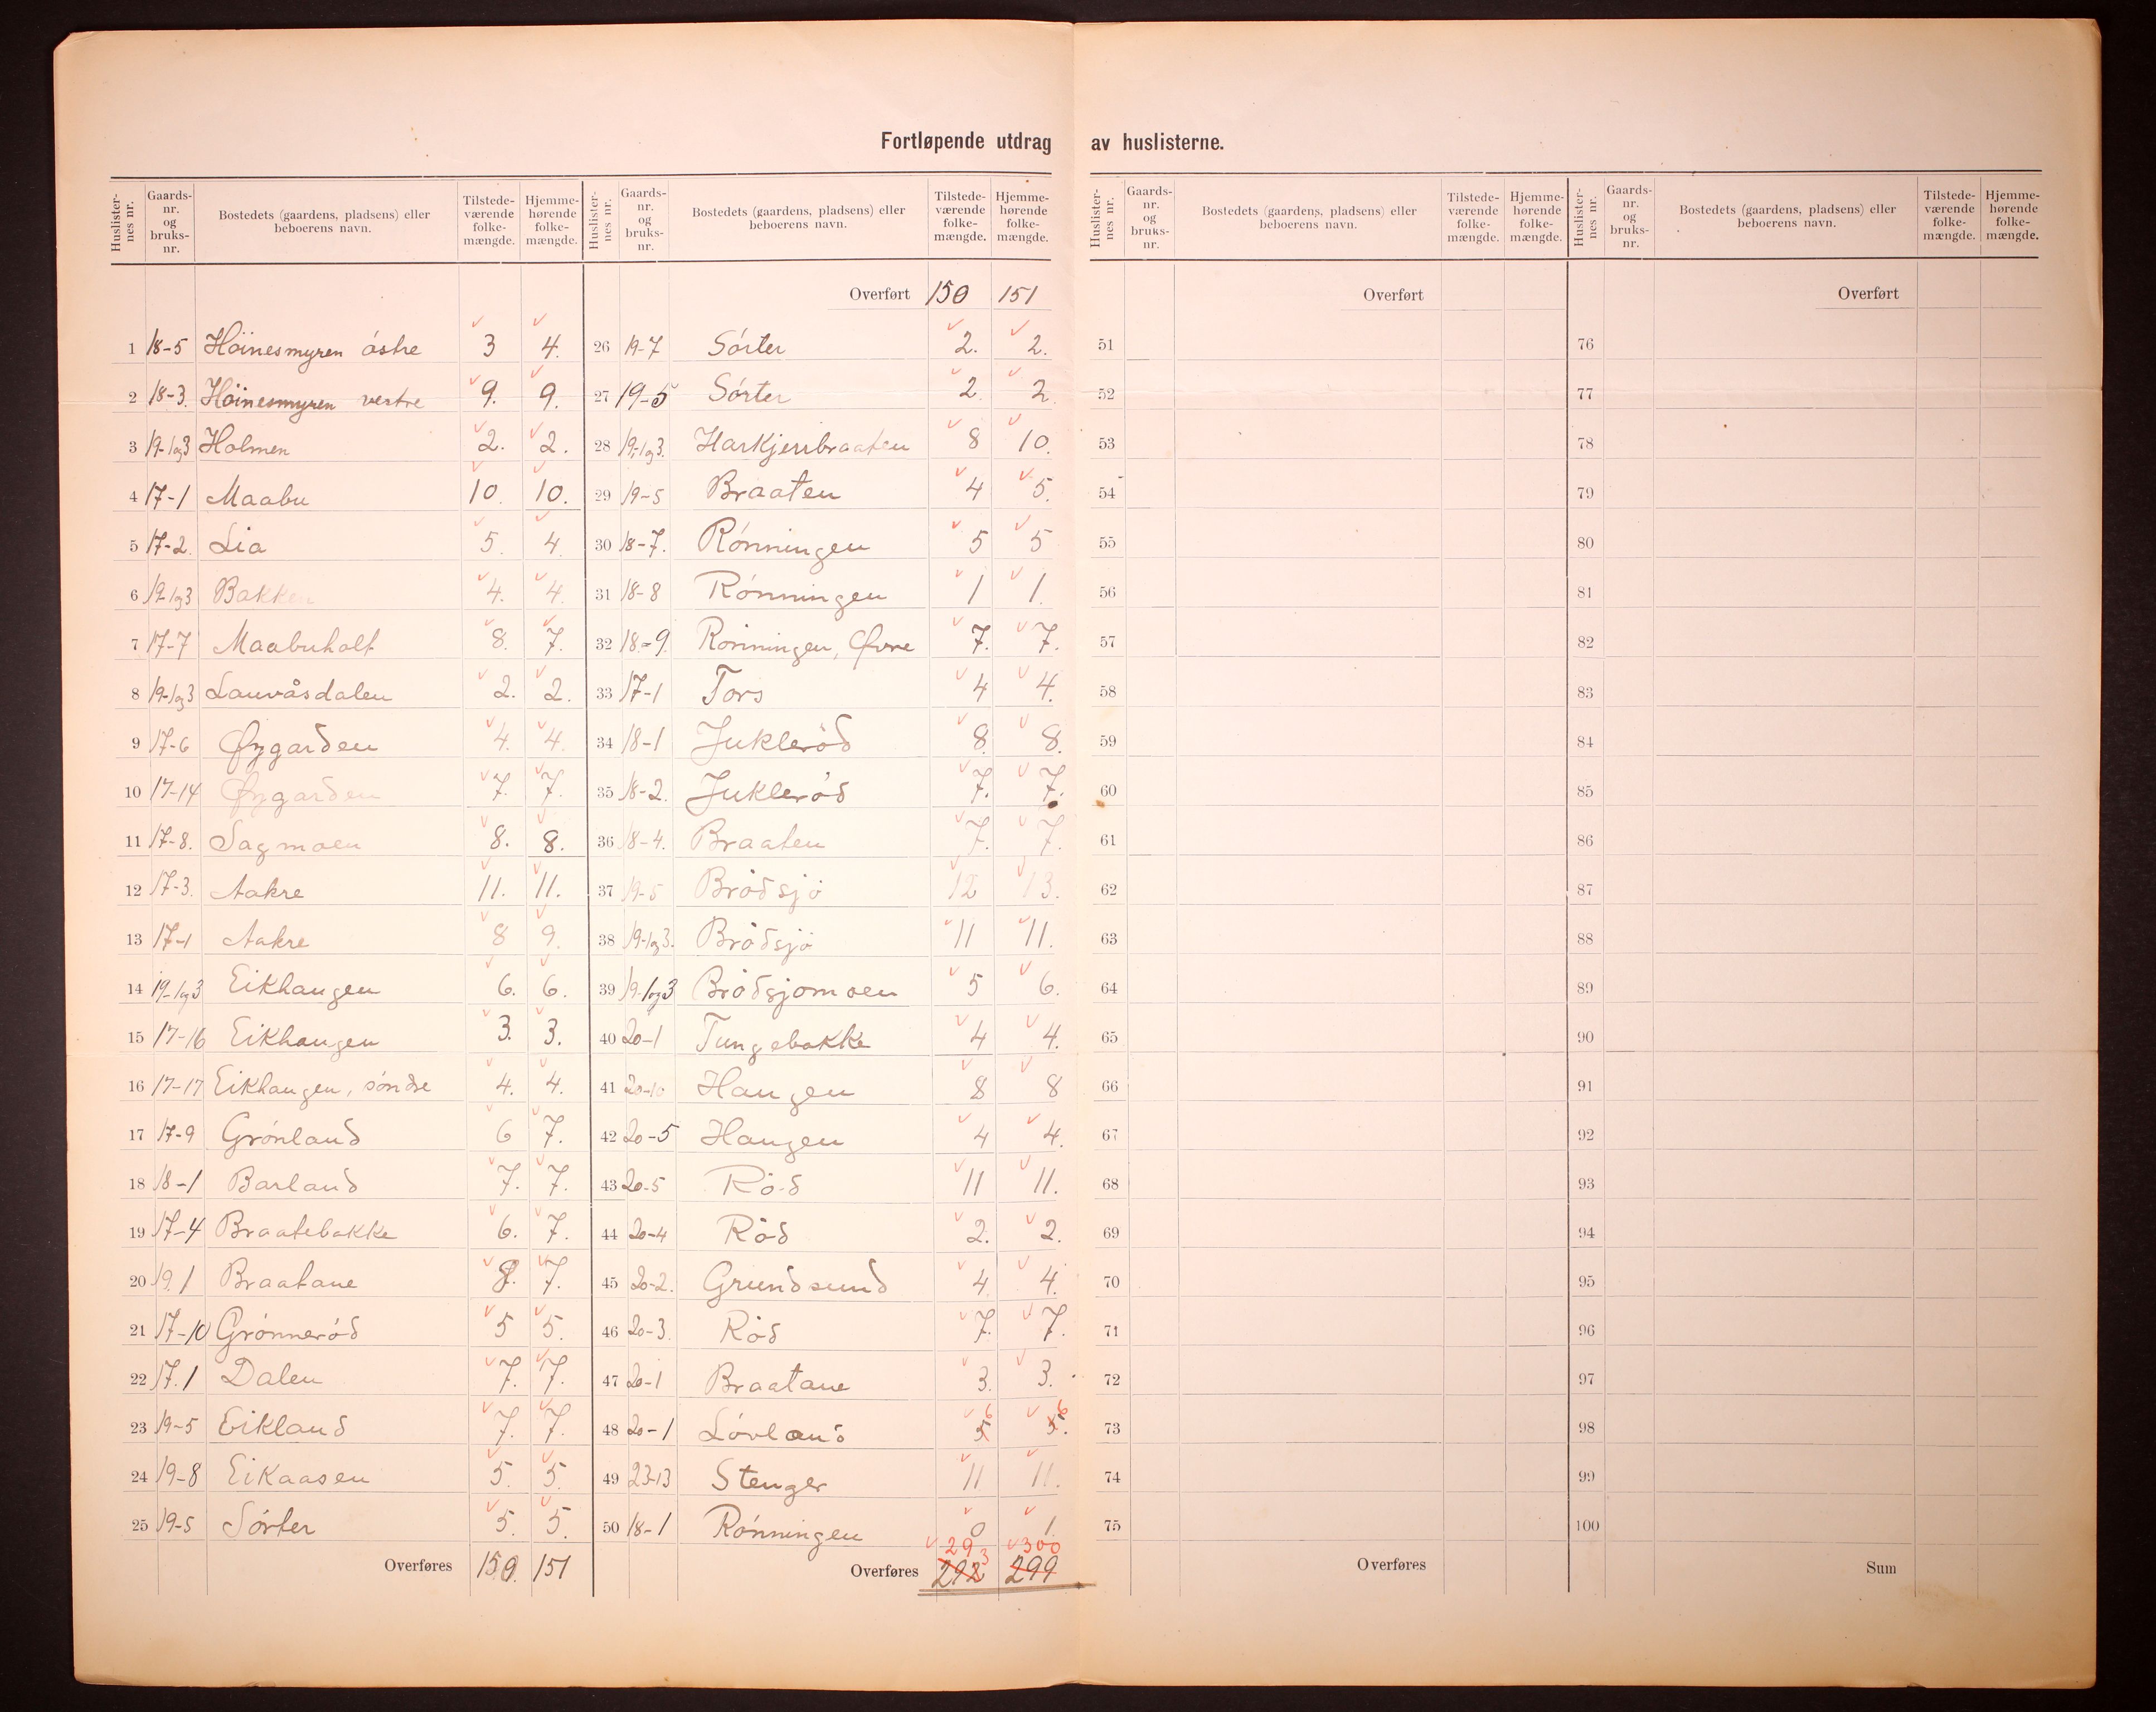 Fortløpende utdrag av huslisterne.
Huslister-nes nr. | Gaards-nr. og bruks-nr. | Bostedets (gaardens, pladsens) eller beboerens navn. | Tilstede-værende folke-mængde. | Hjemme-hørende folke-mængde.
1 18-5 Höinesmyren östre 3 4.
2 18-3. Höinesmyren vestre 9. 9.
3 19-1og3 Holmen 2. 2.
4 17-1 Maabu 10. 10.
5 17-2. Lia 5. 4.
6 19-1og3 Bakken 4. 4.
7 17-7 Maabuholt 8. 7.
8 19-1og3 Lauvåsdalen 2. 2.
9 17-6 Øygarden 4. 4.
10 17-14 Øygarden 7. 7.
11 17-8. Sagmoen 8. 8.
12 17-3. Aakre 11. 11.
13 17-1 Aakre 8 9.
14 19-1og3 Eikhaugen 6. 6.
15 17-16 Eikhaugen 3. 3.
16 17-17 Eikhaugen, söndre 4. 4.
17 17-9 Grönland 6 7.
18 18-1 Barland 7. 7.
19 17-4 Braatebakke 6. 7.
20 19.1 Braatane 8. 7.
21 17-10 Grönneröd 5 5.
22 17.1 Dalen 7. 7.
23 19-5 Eikland 7. 7.
24 19-8 Eikaasen 5. 5.
25 19-5 Sörter 5. 5.
Overføres 150. 151
Huslister-nes nr. | Gaards-nr. og bruks-nr. | Bostedets (gaardens, pladsens) eller beboerens navn. | Tilstede-værende folke-mængde. | Hjemme-hørende folke-mængde.
Overført 150 151
26 19-7 Sörter 2. 2.
27 19-5 Sörter 2. 2.
28 19-1og3. Harkjerrbraaten 8 10.
29 19-5 Braaten 4 5.
30 18-7. Rönningen 5 5
31 18-8 Rönningen 1 1.
32 18-9. Rönningen, Øvre 7. 7.
33 17-1 Tors 4 4.
34 18-1 Jukleröd 8. 8.
35 18-2. Jukleröd 7. 7.
36 18-4. Braaten 7. 7.
37 19-5 Brödsjö 12 13.
38 19-1og3. Brödsjö 11 11.
39 19-1og3 Brödsjömoen 5 6.
40 20-1 Tungebakke 4 4.
41 20-10 Haugen 8 8
42 20-5 Haugen 4 4.
43 20-5 Röd 11 11.
44 20-4 Röd 2. 2.
45 20-2. Grundsund 4. 4.
46 20-3. Röd 7. 7.
47 20-1 Braatane 3. 3.
48 20-1 Lövland 5 6 5. 6
49 23-13 Stenger 11 11.
50 18-1 Rönningen 0 1.
293 300
Overføres 292 299
Huslister-nes nr. | Gaards-nr. og bruks-nr. | Bostedets (gaardens, pladsens) eller beboerens navn. | Tilstede-værende folke-mængde. | Hjemme-hørende folke-mængde.
Overført
51
52
53
54
55
56
57
58
59
60
61
62
63
64
65
66
67
68
69
70
71
72
73
74
75
Overføres
Huslister-nes nr. | Gaards-nr. og bruks-nr. | Bostedets (gaardens, pladsens) eller beboerens navn. | Tilstede-værende folke-mængde. | Hjemme-hørende folke-mængde.
Overført
76
77
78
79
80
81
82
83
84
85
86
87
88
89
90
91
92
93
94
95
96
97
98
99
100
Sum